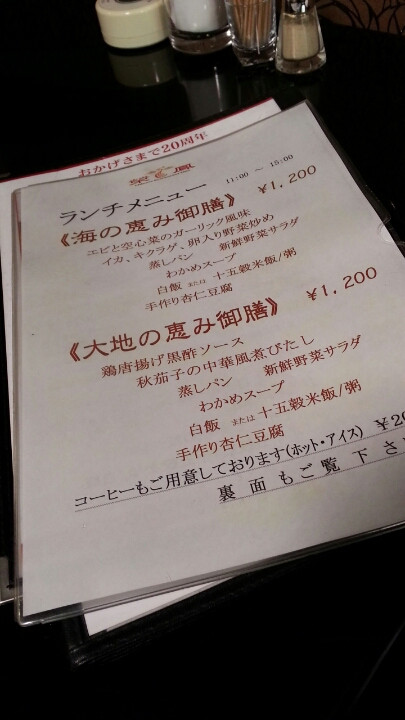 おかげさまで20周年
ランチメニュー 11:00 ～ 15:00
《海の恵み御膳》 ¥1,200
エビと空心菜のガーリック風味
イカ、キクラゲ、卵入り野菜炒め
蒸しパン 新鮮野菜サラダ
わかめスープ
白飯 または 十五穀米飯/粥
手作り杏仁豆腐
《大地の恵み御膳》 ¥1,200
鶏唐揚げ黒酢ソース
秋茄子の中華風煮びたし
蒸しパン 新鮮野菜サラダ
わかめスープ
白飯 または 十五穀米飯/粥
手作り杏仁豆腐
コーヒーもご用意しております(ホット・アイス) ¥20
裏面もご覧下さ